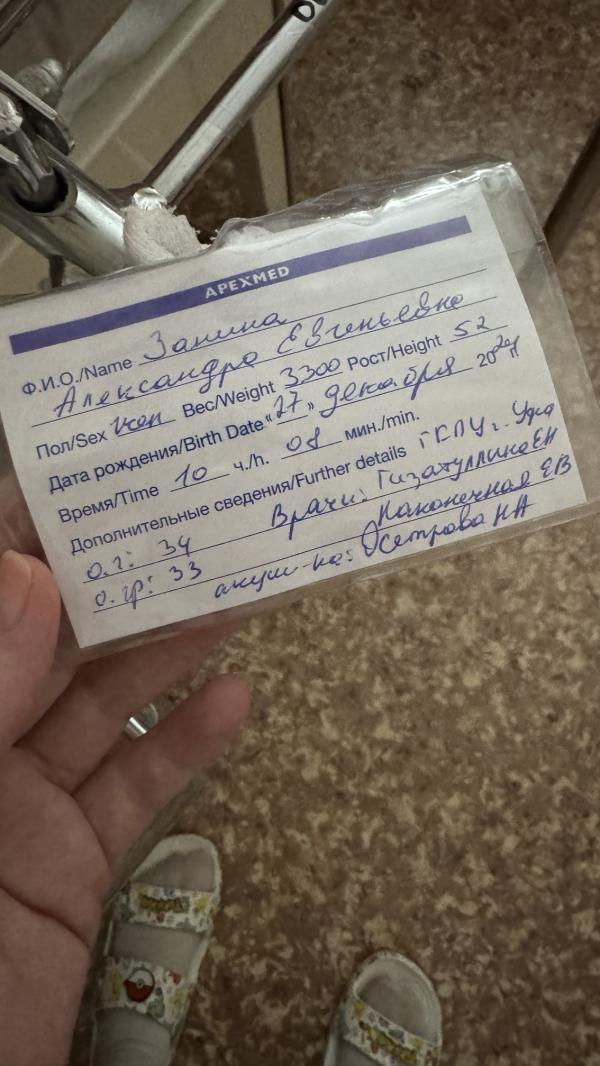 APEXMED
Ф.И.О./Name Занина
Александра Евгеньевна
Пол/Sex жен Вес/Weight 3300 Рост/Height 52
Дата рождения/Birth Date «27» декабря 20
Время/Time 10 ч./h. 08 мин./min.
Дополнительные сведения/Further details ГКПЦ г. Уфа
о.г: 34 Врачи: Гизатуллина ЕН
Наконечная ЕВ
о.гр: 33 акуш-ка: Осетрова НА